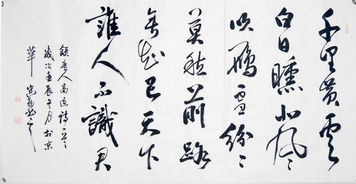 千里黄雲
白日曛北風
吹鴈雪紛〻
莫愁前路
無知己天下
誰人不識君
錄唐人高適詩一首
歲次壬辰月於京
華